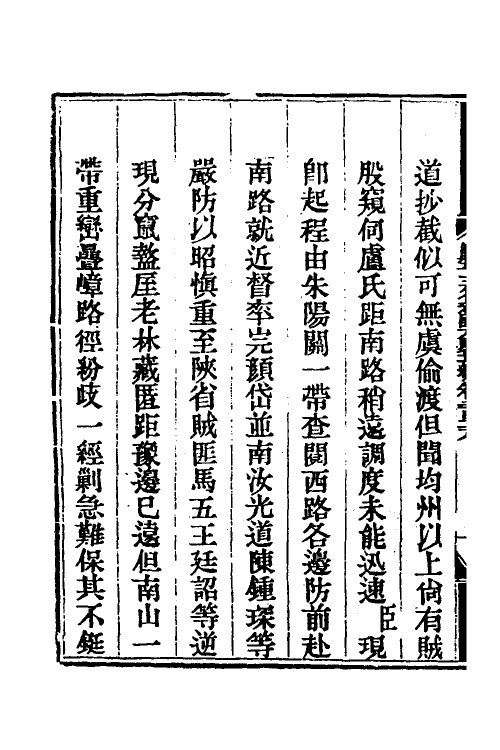 道抄截似可無虞偷渡但聞均州以上尙有賊
股窺伺盧氏距南路稍遠調度未能迅速臣現
卽起程由朱陽關一帶查閱西路各邊防前赴
南路就近督率完顏岱並南汝光道陳鍾琛等
嚴防以昭愼重至陝省賊匪馬五王廷詔等逆
現分竄盩厔老林藏匿距豫邊已遠但南山一
帶重巒疊嶂路徑紛歧一經剿急難保其不鋌